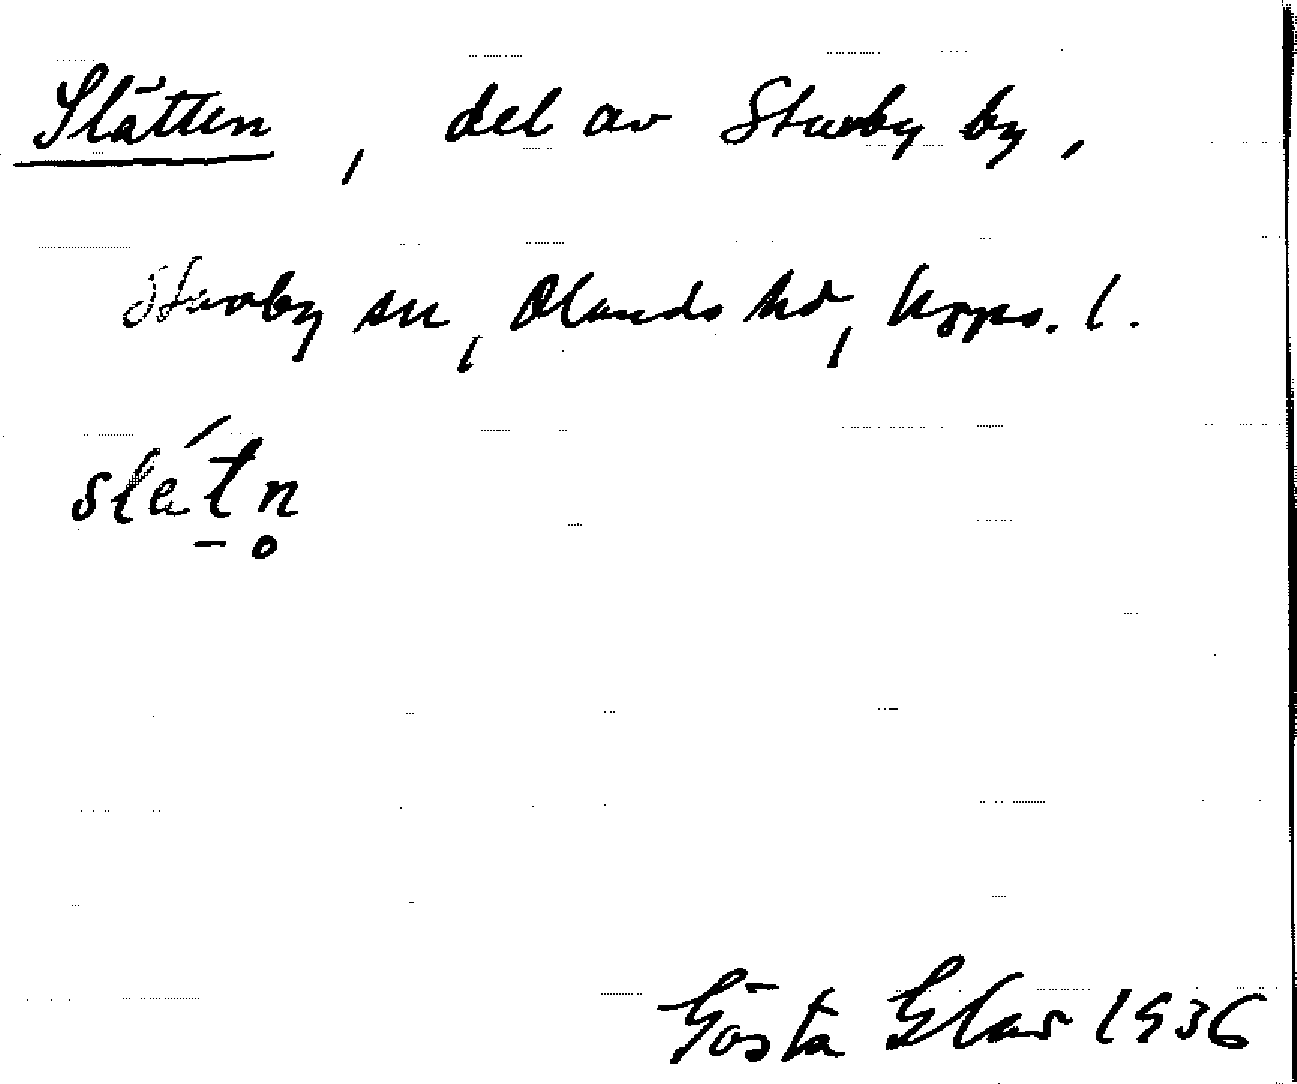 Slätten, del av Stavby by,
Stavby sn, Olands hd, Upps. l.
slét̠n̥
Gösta Elas 1936